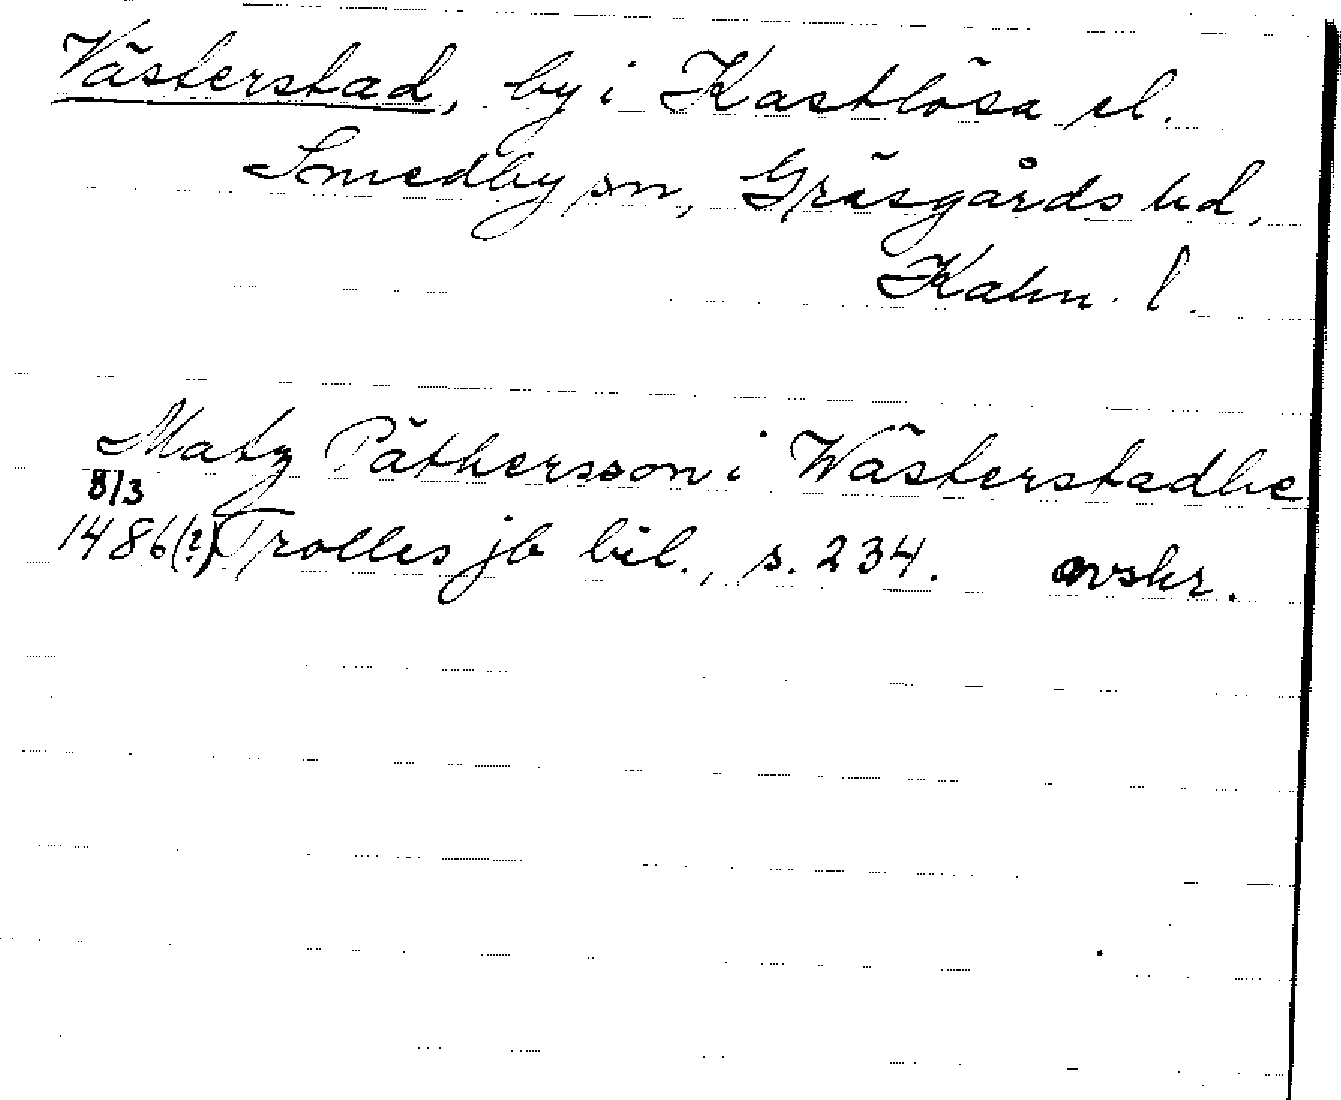 Västerstad, by i Kastlösa el.
Smedby sn, Gräsgårds hd,
Kalm. l.
Matz Päthersson i Wästerstadhe
8/3
1486(?) Trolles jb bil., s. 234. avskr.